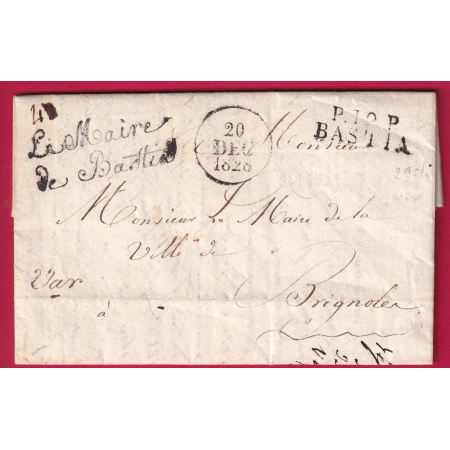 Le Maire
de Bastia
20
DEC
1828
P.19.P.
BASTIA
Monsieur
Monsieur Le Maire de la
Ville de
Var
à Brignoles